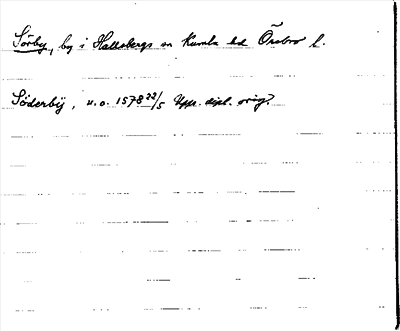 Sörby, by i Hallsbergs sn Kumla hd Örebro l.
Söderbÿ, u.o. 1578 22/5 Upps. dipl. orig.